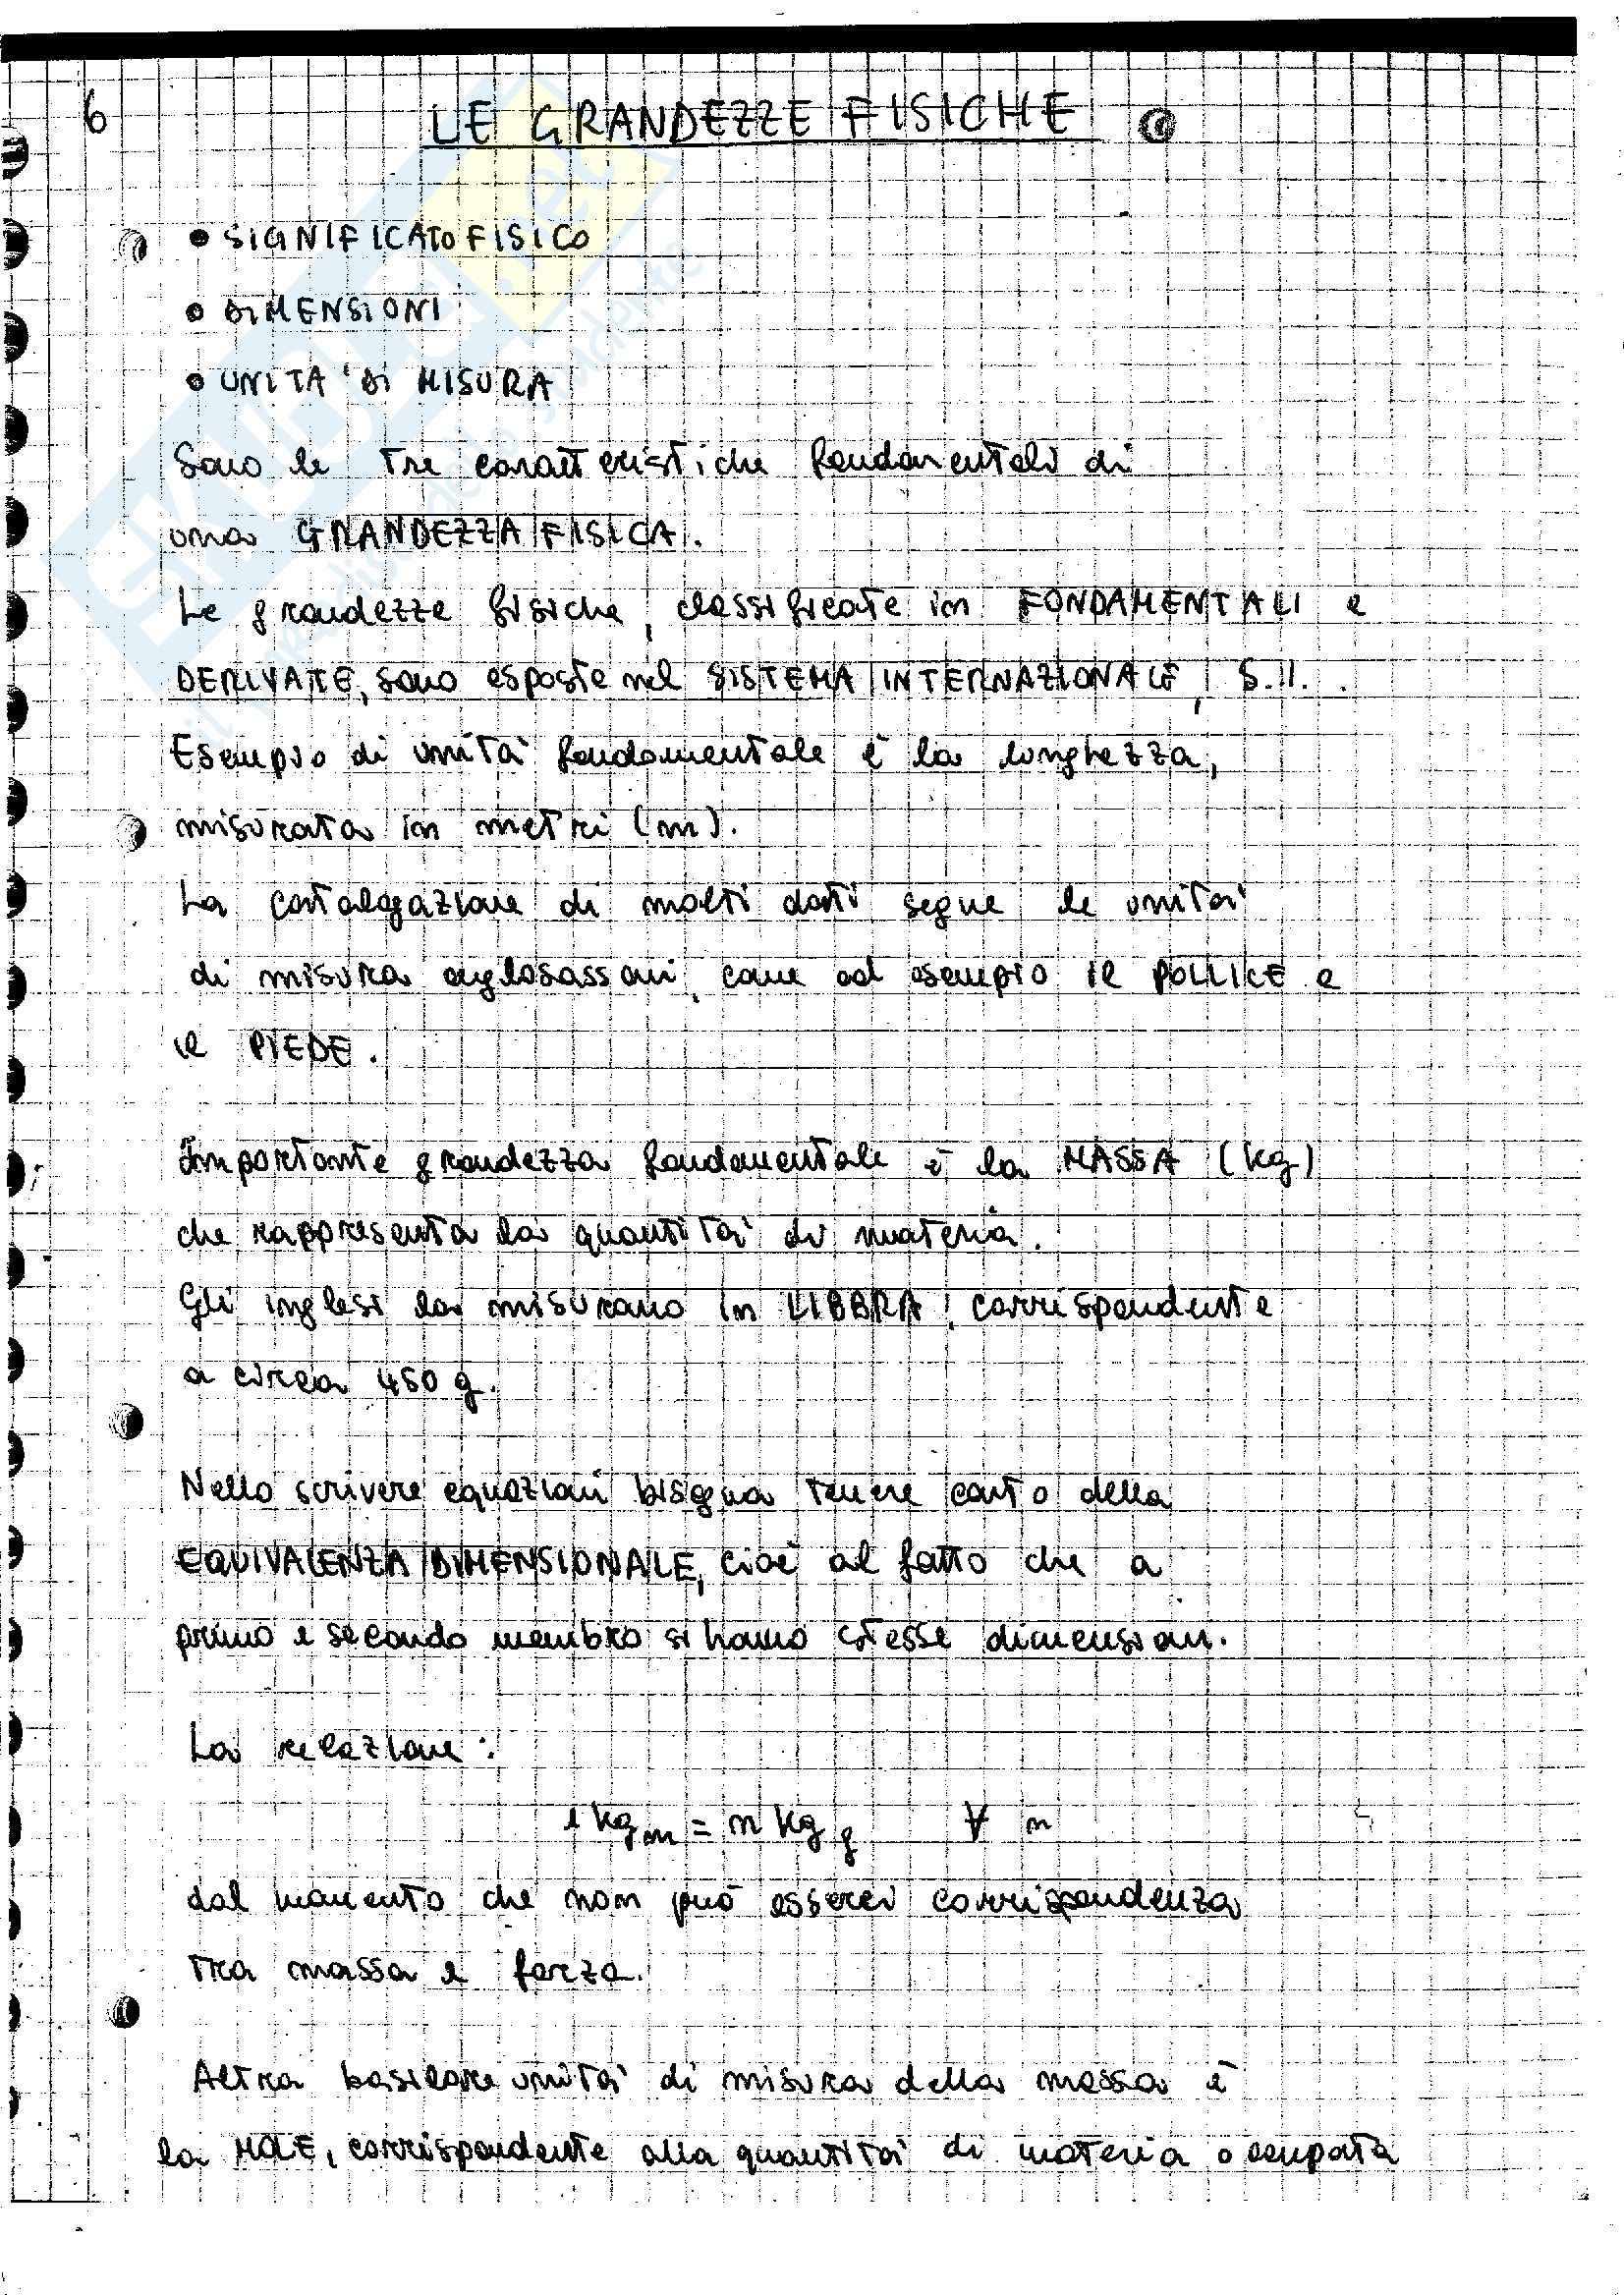 6
LE GRANDEZZE FISICHE
• SIGNIFICATO FISICO
• DIMENSIONI
• UNITA' DI MISURA
Sono le tre caratteristiche fondamentali di
una GRANDEZZA FISICA.
Le grandezze fisiche, classificate in FONDAMENTALI e
DERIVATE, sono esposte nel SISTEMA INTERNAZIONALE, S.I..
Esempio di unità fondamentale è la lunghezza,
misurata in metri (m).
La catalogazione di molti dati segue le unità
di misura anglosassoni, come ad esempio il POLLICE e
il PIEDE.
Importante grandezza fondamentale è la MASSA (kg)
che rappresenta la quantità di materia.
Gli inglesi la misurano in LIBBRA, corrispondente
a circa 450 g.
Nello scrivere equazioni bisogna tenere conto della
EQUIVALENZA DIMENSIONALE, cioè al fatto che a
primo e secondo membro si hanno stesse dimensioni.
La relazione:
1 kg m = n kg f ∀ n
dal momento che non può esserci corrispondenza
tra massa e forza.
Altra basilare unità di misura della massa è
la MOLE, corrispondente alla quantità di materia occupata